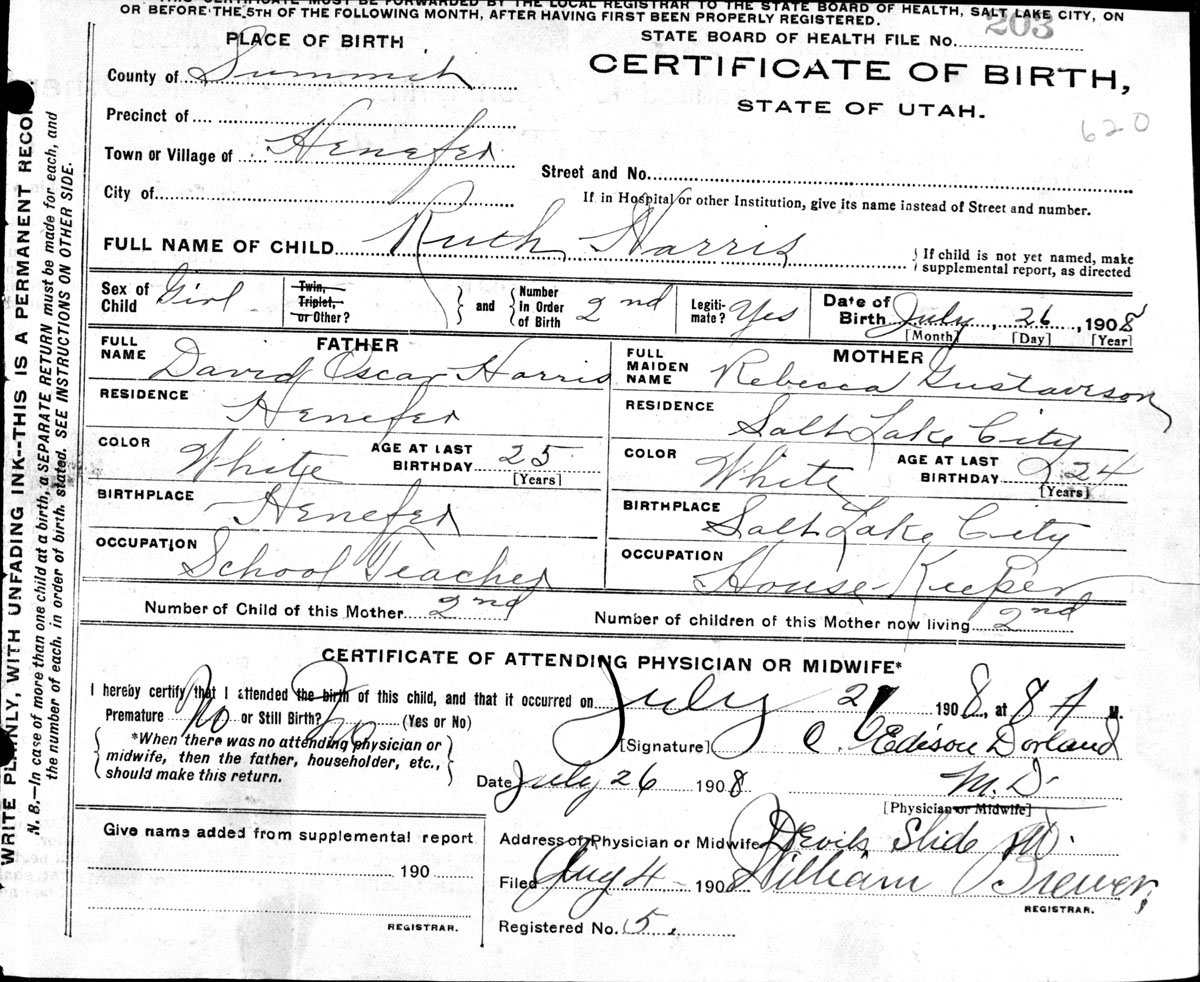 THIS CERTIFICATE MUST BE FORWARDED BY THE LOCAL REGISTRAR TO THE STATE BOARD OF HEALTH, SALT LAKE CITY, ON
OR BEFORE THE 5TH OF THE FOLLOWING MONTH, AFTER HAVING FIRST BEEN PROPERLY REGISTERED.
WRITE PLAINLY, WITH UNFADING INK--THIS IS A PERMANENT RECO
N. B.—In case of more than one child at a birth, a SEPARATE RETURN must be made for each, and
the number of each, in order of birth, stated. SEE INSTRUCTIONS ON OTHER SIDE.
PLACE OF BIRTH
STATE BOARD OF HEALTH FILE No. 203
CERTIFICATE OF BIRTH,
STATE OF UTAH.
620
County of Summit
Precinct of
Town or Village of Henefer
Street and No.
City of
If in Hospital or other Institution, give its name instead of Street and number.
FULL NAME OF CHILD Ruth Harris
{ If child is not yet named, make
supplemental report, as directed
Sex of Child Girl
Twin, Triplet, or Other?
and
Number In Order of Birth 2nd
Legiti-mate? Yes
Date of Birth July, 26, 1908
[Month] [Day] [Year]
FATHER
FULL NAME David Oscar Harris
RESIDENCE Henefer
COLOR White AGE AT LAST BIRTHDAY 25
[Years]
BIRTHPLACE Henefer
OCCUPATION School Teacher
MOTHER
FULL MAIDEN NAME Rebecca Gustaveson
RESIDENCE Salt Lake City
COLOR White AGE AT LAST BIRTHDAY 24
[Years]
BIRTHPLACE Salt Lake City
OCCUPATION House Keeper
Number of Child of this Mother 2nd
Number of children of this Mother now living 2nd
CERTIFICATE OF ATTENDING PHYSICIAN OR MIDWIFE*
I hereby certify that I attended the birth of this child, and that it occurred on July 26 1908, at 8 A M.
Premature No or Still Birth? No (Yes or No)
*When there was no attending physician or
midwife, then the father, householder, etc.,
should make this return.
[Signature] C. Edison Dorland
Date July 26 1908 M.D.
[Physician or Midwife]
Give name added from supplemental report
190
REGISTRAR.
Address of Physician or Midwife Devils Slide
Filed Aug 4 1908 William Brewer,
REGISTRAR.
Registered No. 5.